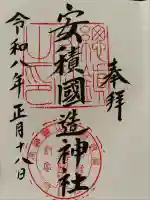 奉拝
安積國造神社
令和八年正月十八日